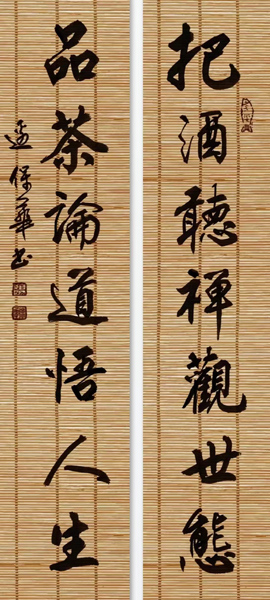 把酒聽禪觀世態
品茶論道悟人生
孟保華書